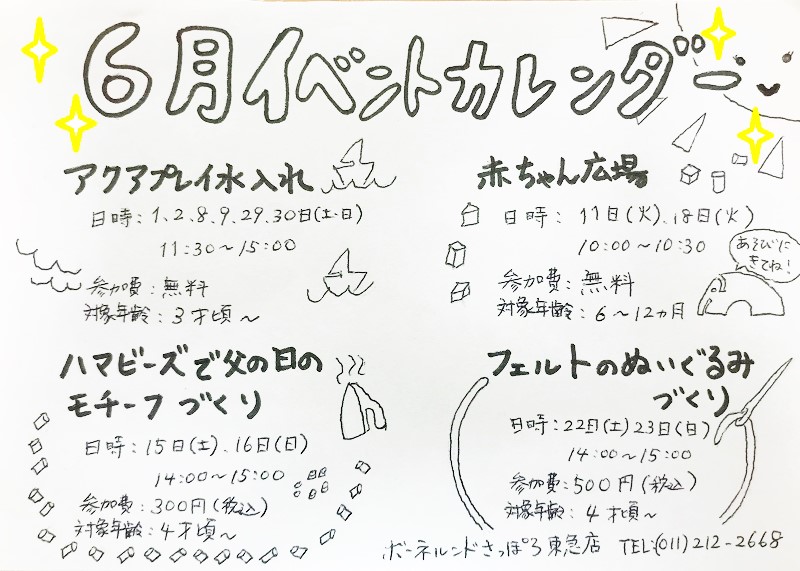 6月イベントカレンダー
アクアプレイ水入れ
日時:1、2、8、9、29、30日(土・日)
11:30～15:00
参加費:無料
対象年齢:3才頃～
赤ちゃん広場
日時:11日(火)、18日(火)
10:00～10:30
参加費:無料
対象年齢:6～12ヵ月
あそびに
きてね!
ハマビーズで父の日の
モチーフづくり
日時:15日(土)、16日(日)
14:00～15:00
参加費:300円(税込)
対象年齢:4才頃～
フェルトのぬいぐるみ
づくり
日時:22日(土)23日(日)
14:00～15:00
参加費:500円(税込)
対象年齢:4才頃～
ボーネルンドさっぽろ東急店 TEL:(011)212-2668